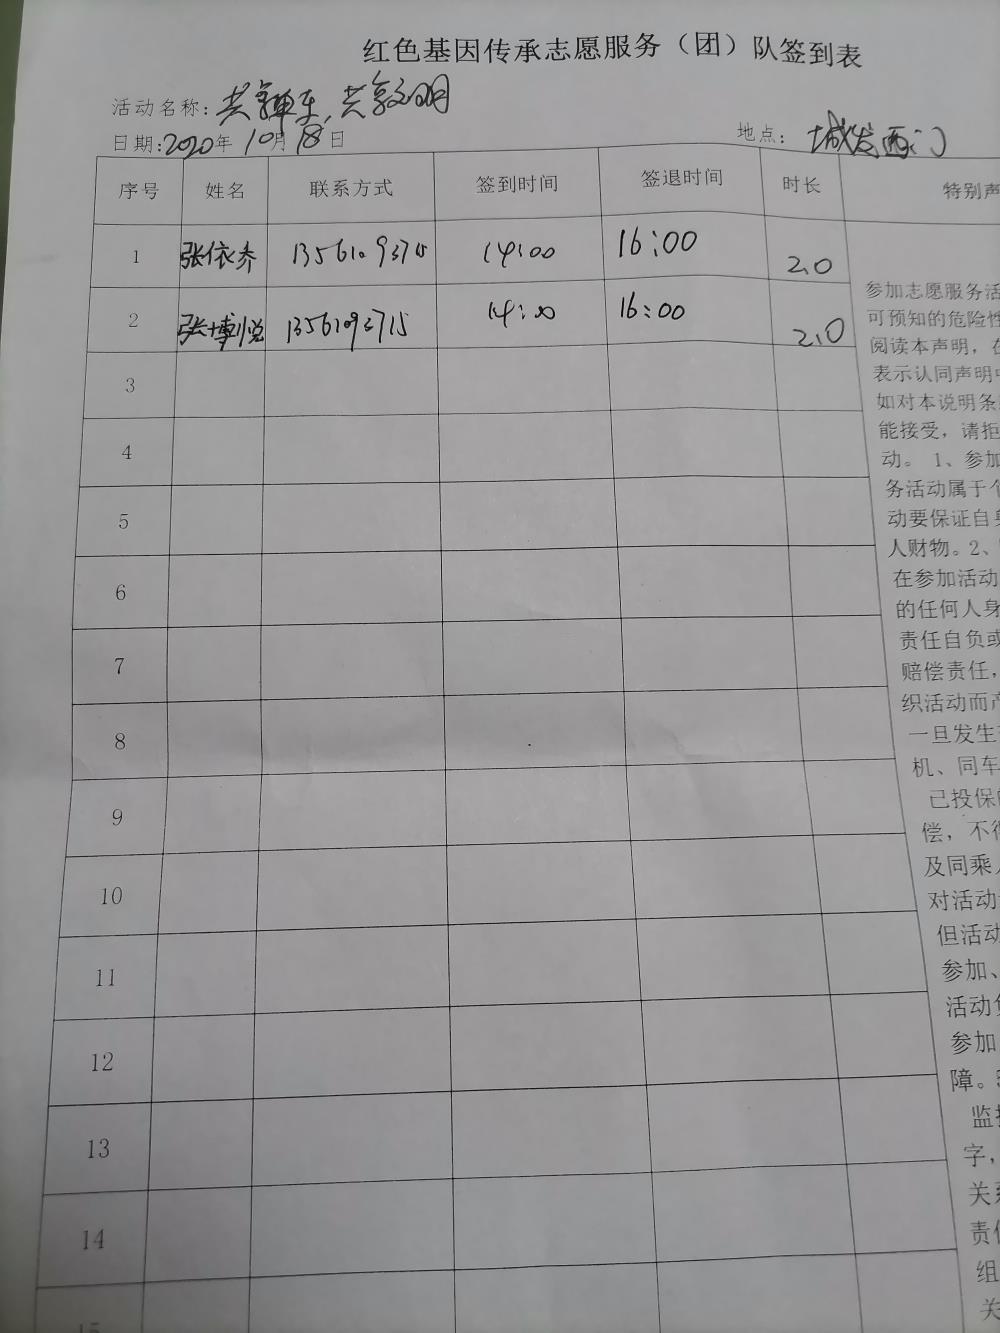 红色基因传承志愿服务（团）队签到表
活动名称：共享单车，共享文明
日期：2020年10月18日 地点：城发西门
序号 姓名 联系方式 签到时间 签退时间 时长 特别声
1 张依乔 13561093715 14:00 16:00 2.0
2 张博悦 13561093715 14:00 16:00 2.0
3
4
5
6
7
8
9
10
11
12
13
14
15
参加志愿服务活
可预知的危险性
阅读本声明，在
表示认同声明中
如对本说明条
能接受，请拒
动。 1、参加
务活动属于个
动要保证自身
人财物。2、
在参加活动
的任何人身
责任自负或
赔偿责任，
织活动而产
一旦发生
机、同车
已投保
偿，不得
及同乘人
对活动
但活动
参加、
活动负
参加
障。3
监护
字，
关系
责任
组
关